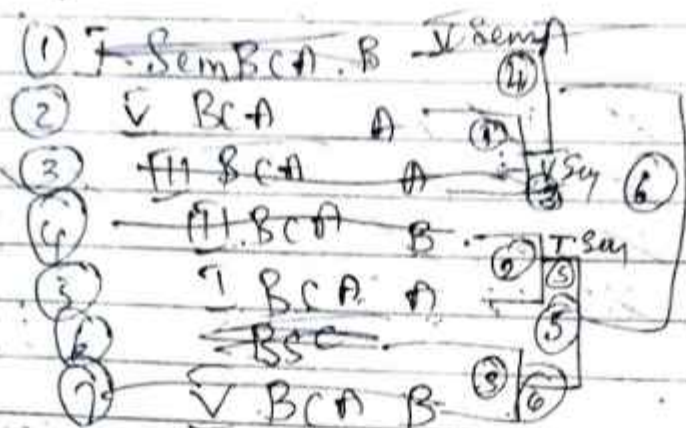 ① I Sem BCA. B V Sem A ④
② V BCA A ①
③ III BCA A V Sem ③ ⑥
④ III. BCA B. ② I Sem
⑤ I BCA A ⑤ ⑤
⑥ BSC
⑦ V BCA B ③ ⑥